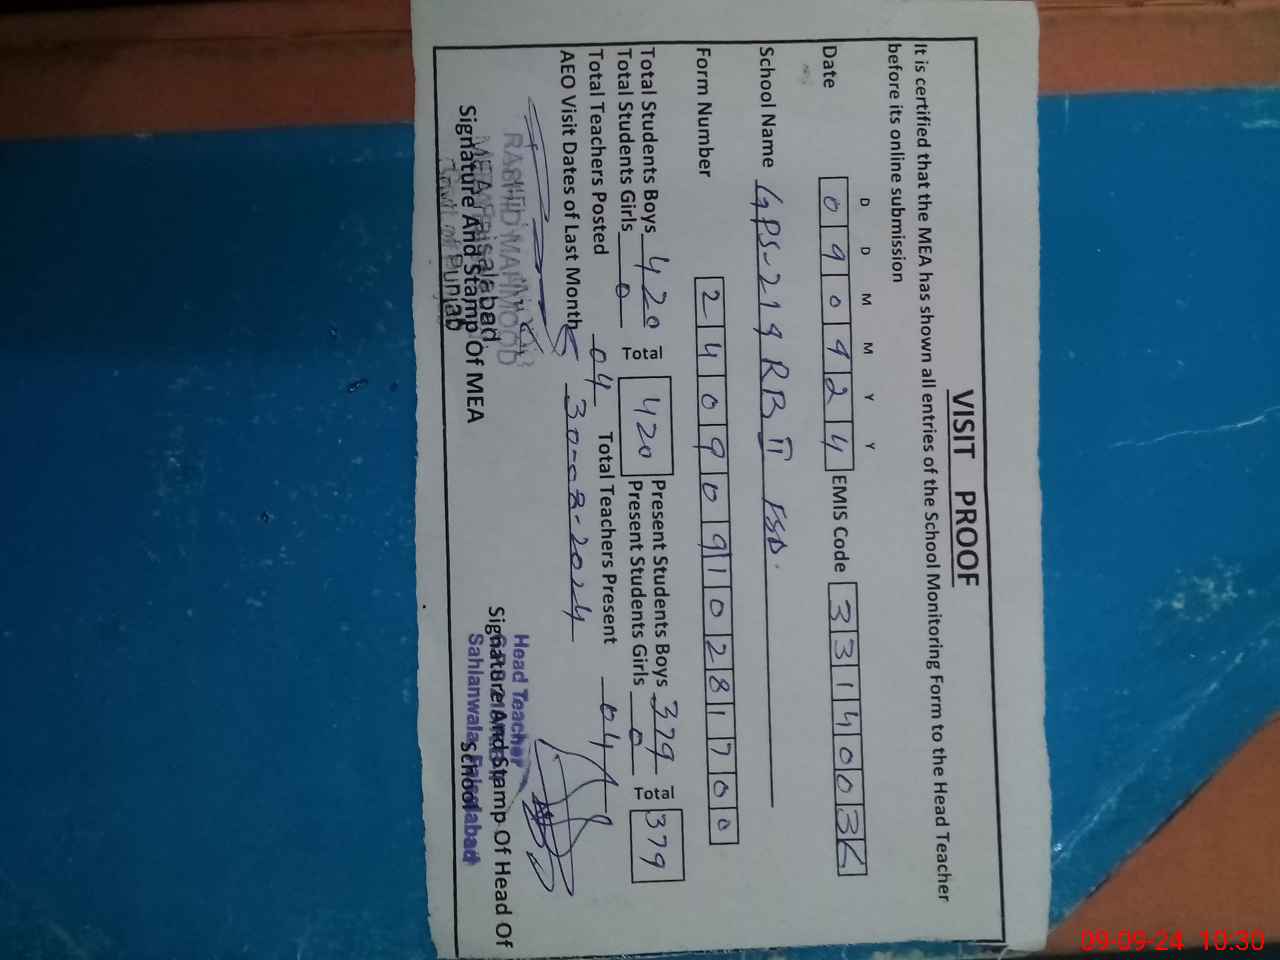 VISIT PROOF
It is certified that the MEA has shown all entries of the School Monitoring Form to the Head Teacher
before its online submission
D D M M Y Y
Date 090924 EMIS Code 3314003
School Name GPS-219 RB II FSD.
Form Number 24090910281700
Total Students Boys 420 Total 420 Present Students Boys 379 Total 379
Total Students Girls 0 Present Students Girls 0
Total Teachers Posted 04 Total Teachers Present 04
AEO Visit Dates of Last Month 30-08-2024
RASHID MAHMOOD
MEA Faisalabad
Govt. of Punjab
Signature And Stamp Of MEA
Head Teacher
Sahlanwala Faisalabad
Signature And Stamp Of Head Of
School
09-09-24 10:30